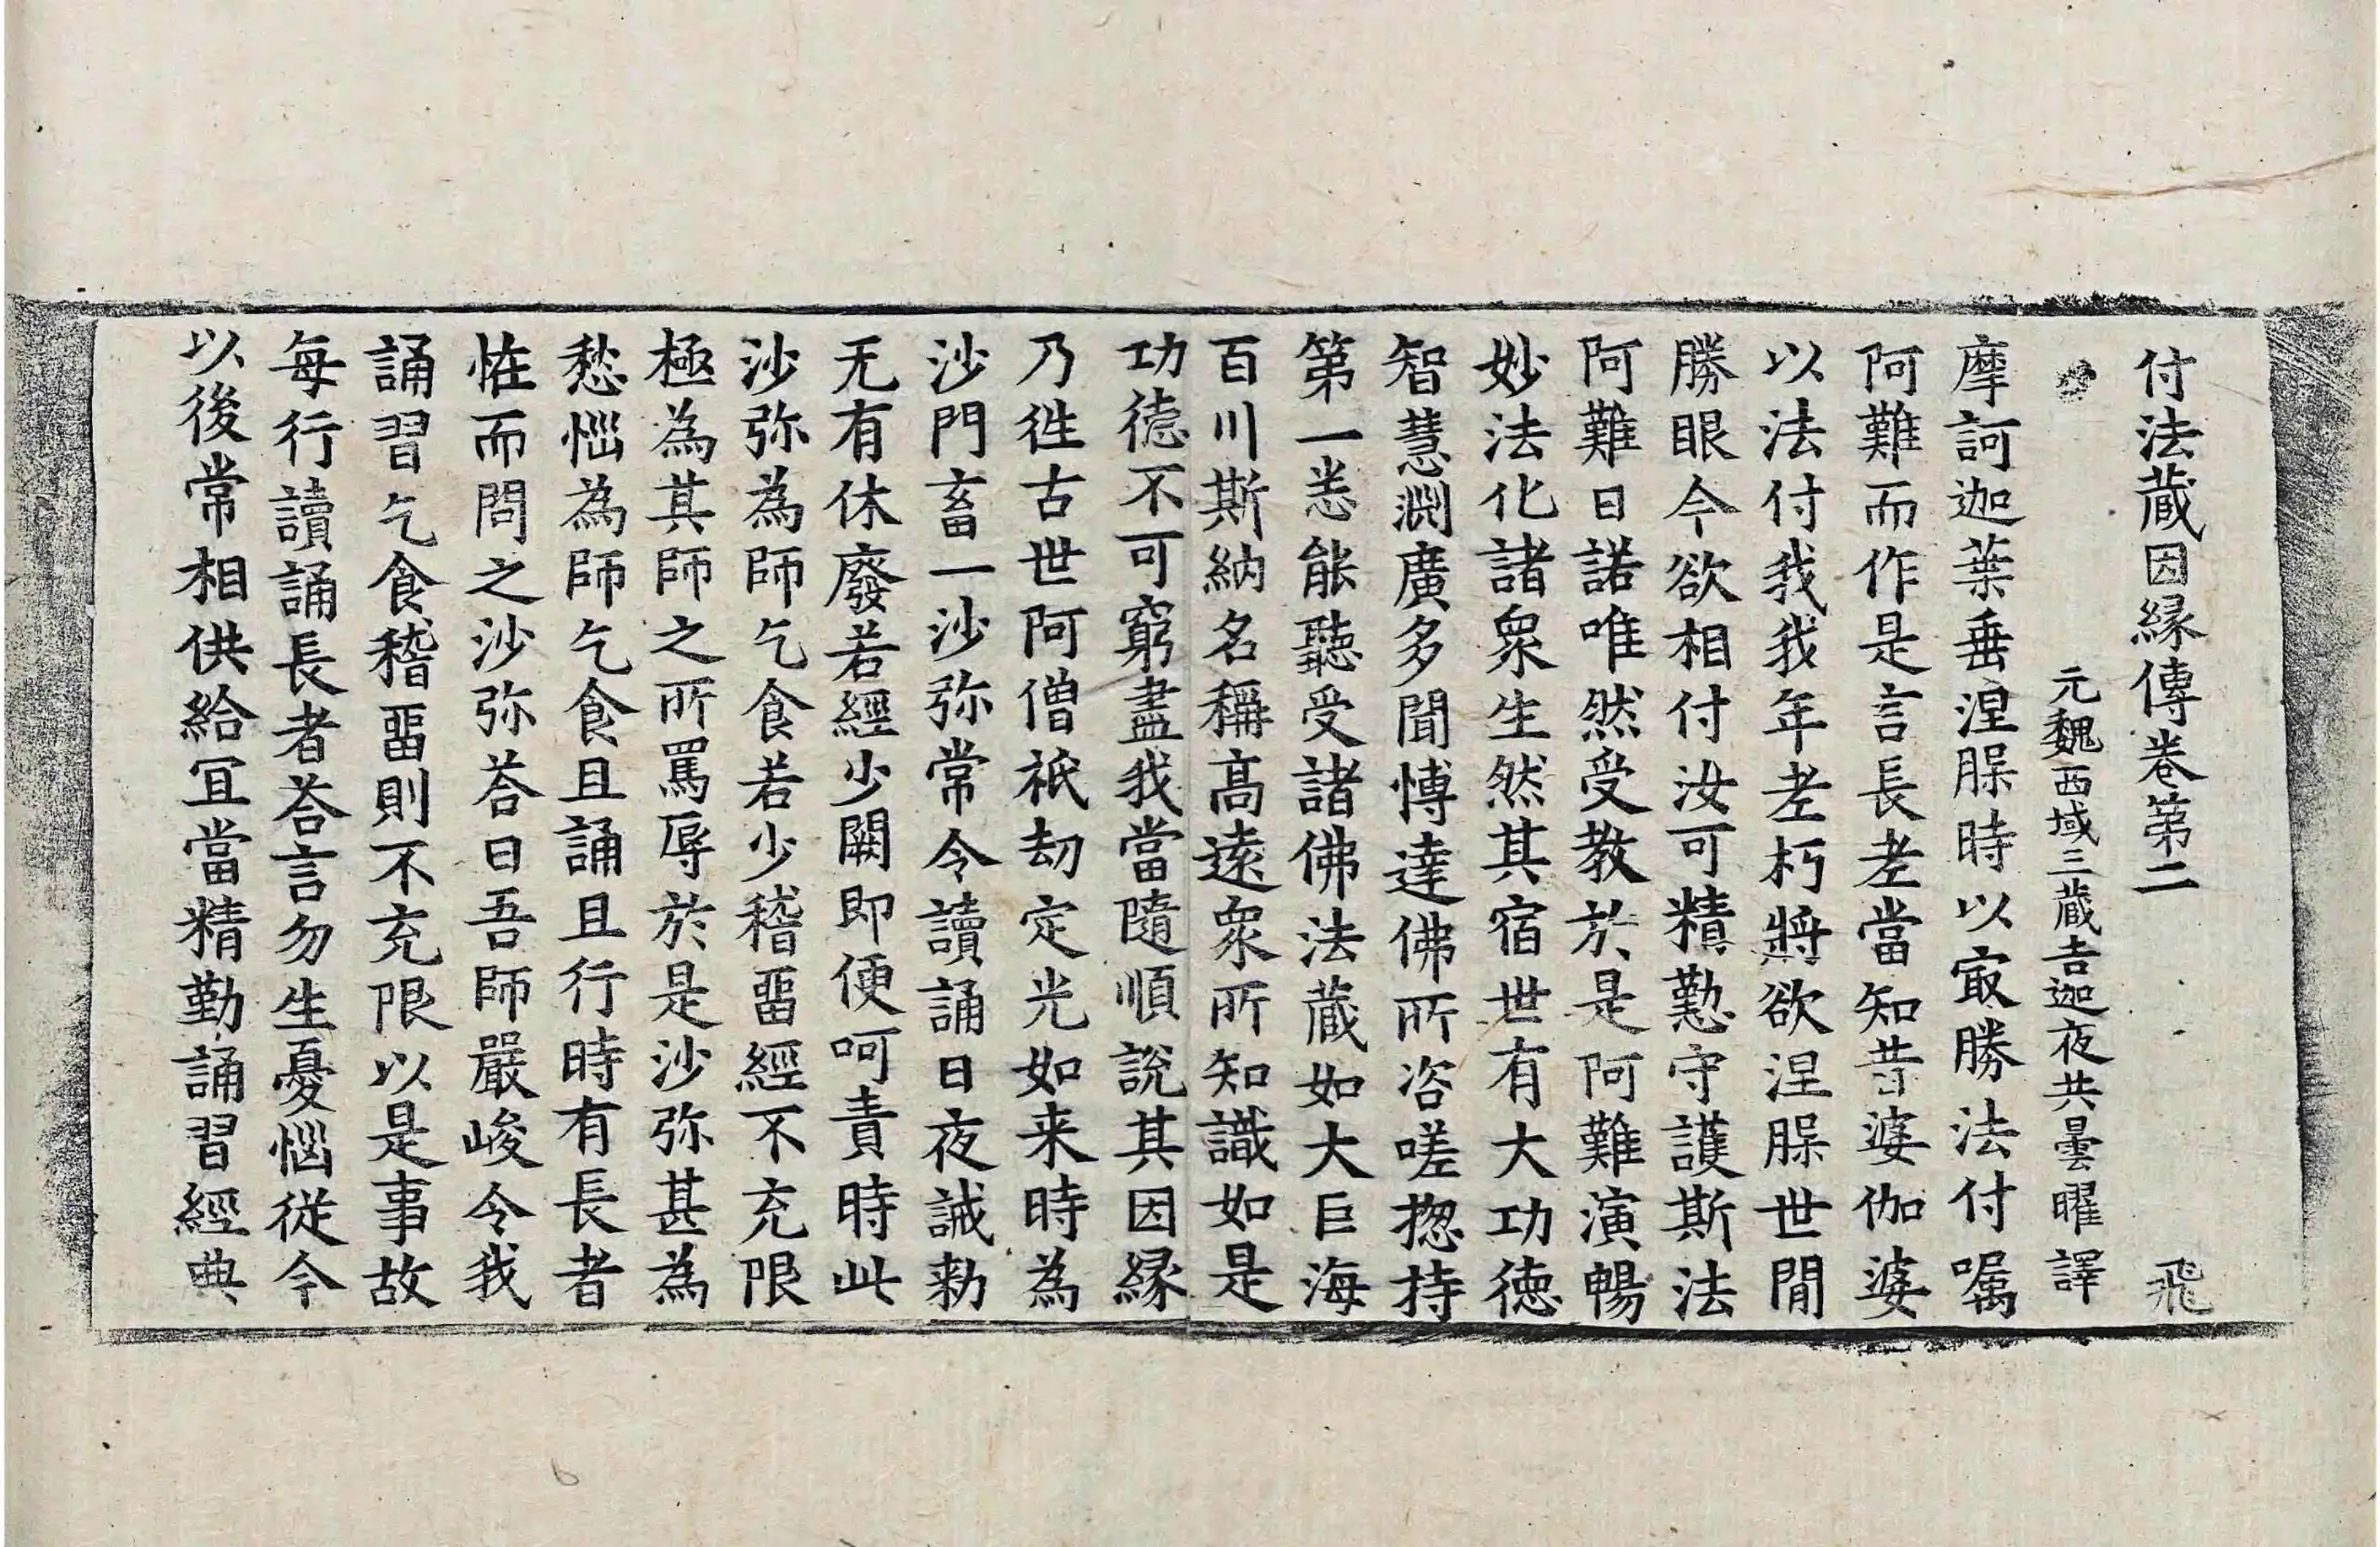 付法蔵因縁傳巻第二 飛
元魏西域三蔵吉迦夜共曇曜譯
摩訶迦葉垂涅膎時以㝡勝法付嘱
阿難而作是言長老當知昔婆伽婆
以法付我我年老朽將欲涅膎世間
勝眼今欲相付汝可精懃守護斯法
阿難曰諾唯然受教於是阿難演暢
妙法化諸衆生然其宿世有大功德
智慧淵廣多聞愽達佛所咨嗟揔持
第一悉能聽受諸佛法蔵如大巨海
百川斯納名稱髙逺衆所知識如是
功德不可窮盡我當隨順說其因縁
乃徃古世阿僧祇劫定光如来時為
沙門畜一沙弥常令讀誦日夜誡勑
无有休廢若經少闕即便呵責時此
沙弥為師乞食若少稽畱經不充限
極為其師之所罵辱於是沙弥甚為
愁惱為師乞食且誦且行時有長者
恠而問之沙弥荅曰吾師嚴峻令我
誦習乞食稽畱則不充限以是事故
每行讀誦長者荅言勿生憂惱従今
以後常相供給冝當精勤誦習經典